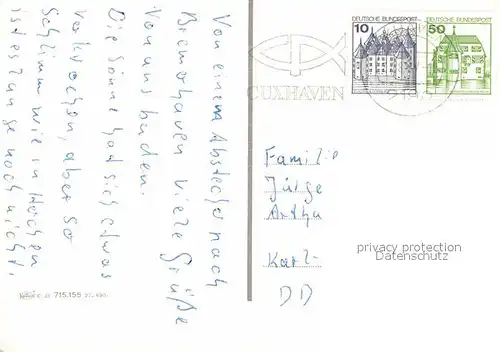 Von einem Abstecher nach
Bremerhaven viele Grüße
Von uns beiden.
Die Sonne hat sich etwas
verkrochen, aber so
schlimm wie in
ist es lange noch nicht.
DEUTSCHE BUNDESPOST
10
DEUTSCHE BUNDESPOST
50
CUXHAVEN
Familie
Jürge
Artha
Karl-
DD
privacy protection
Datenschutz
715.155